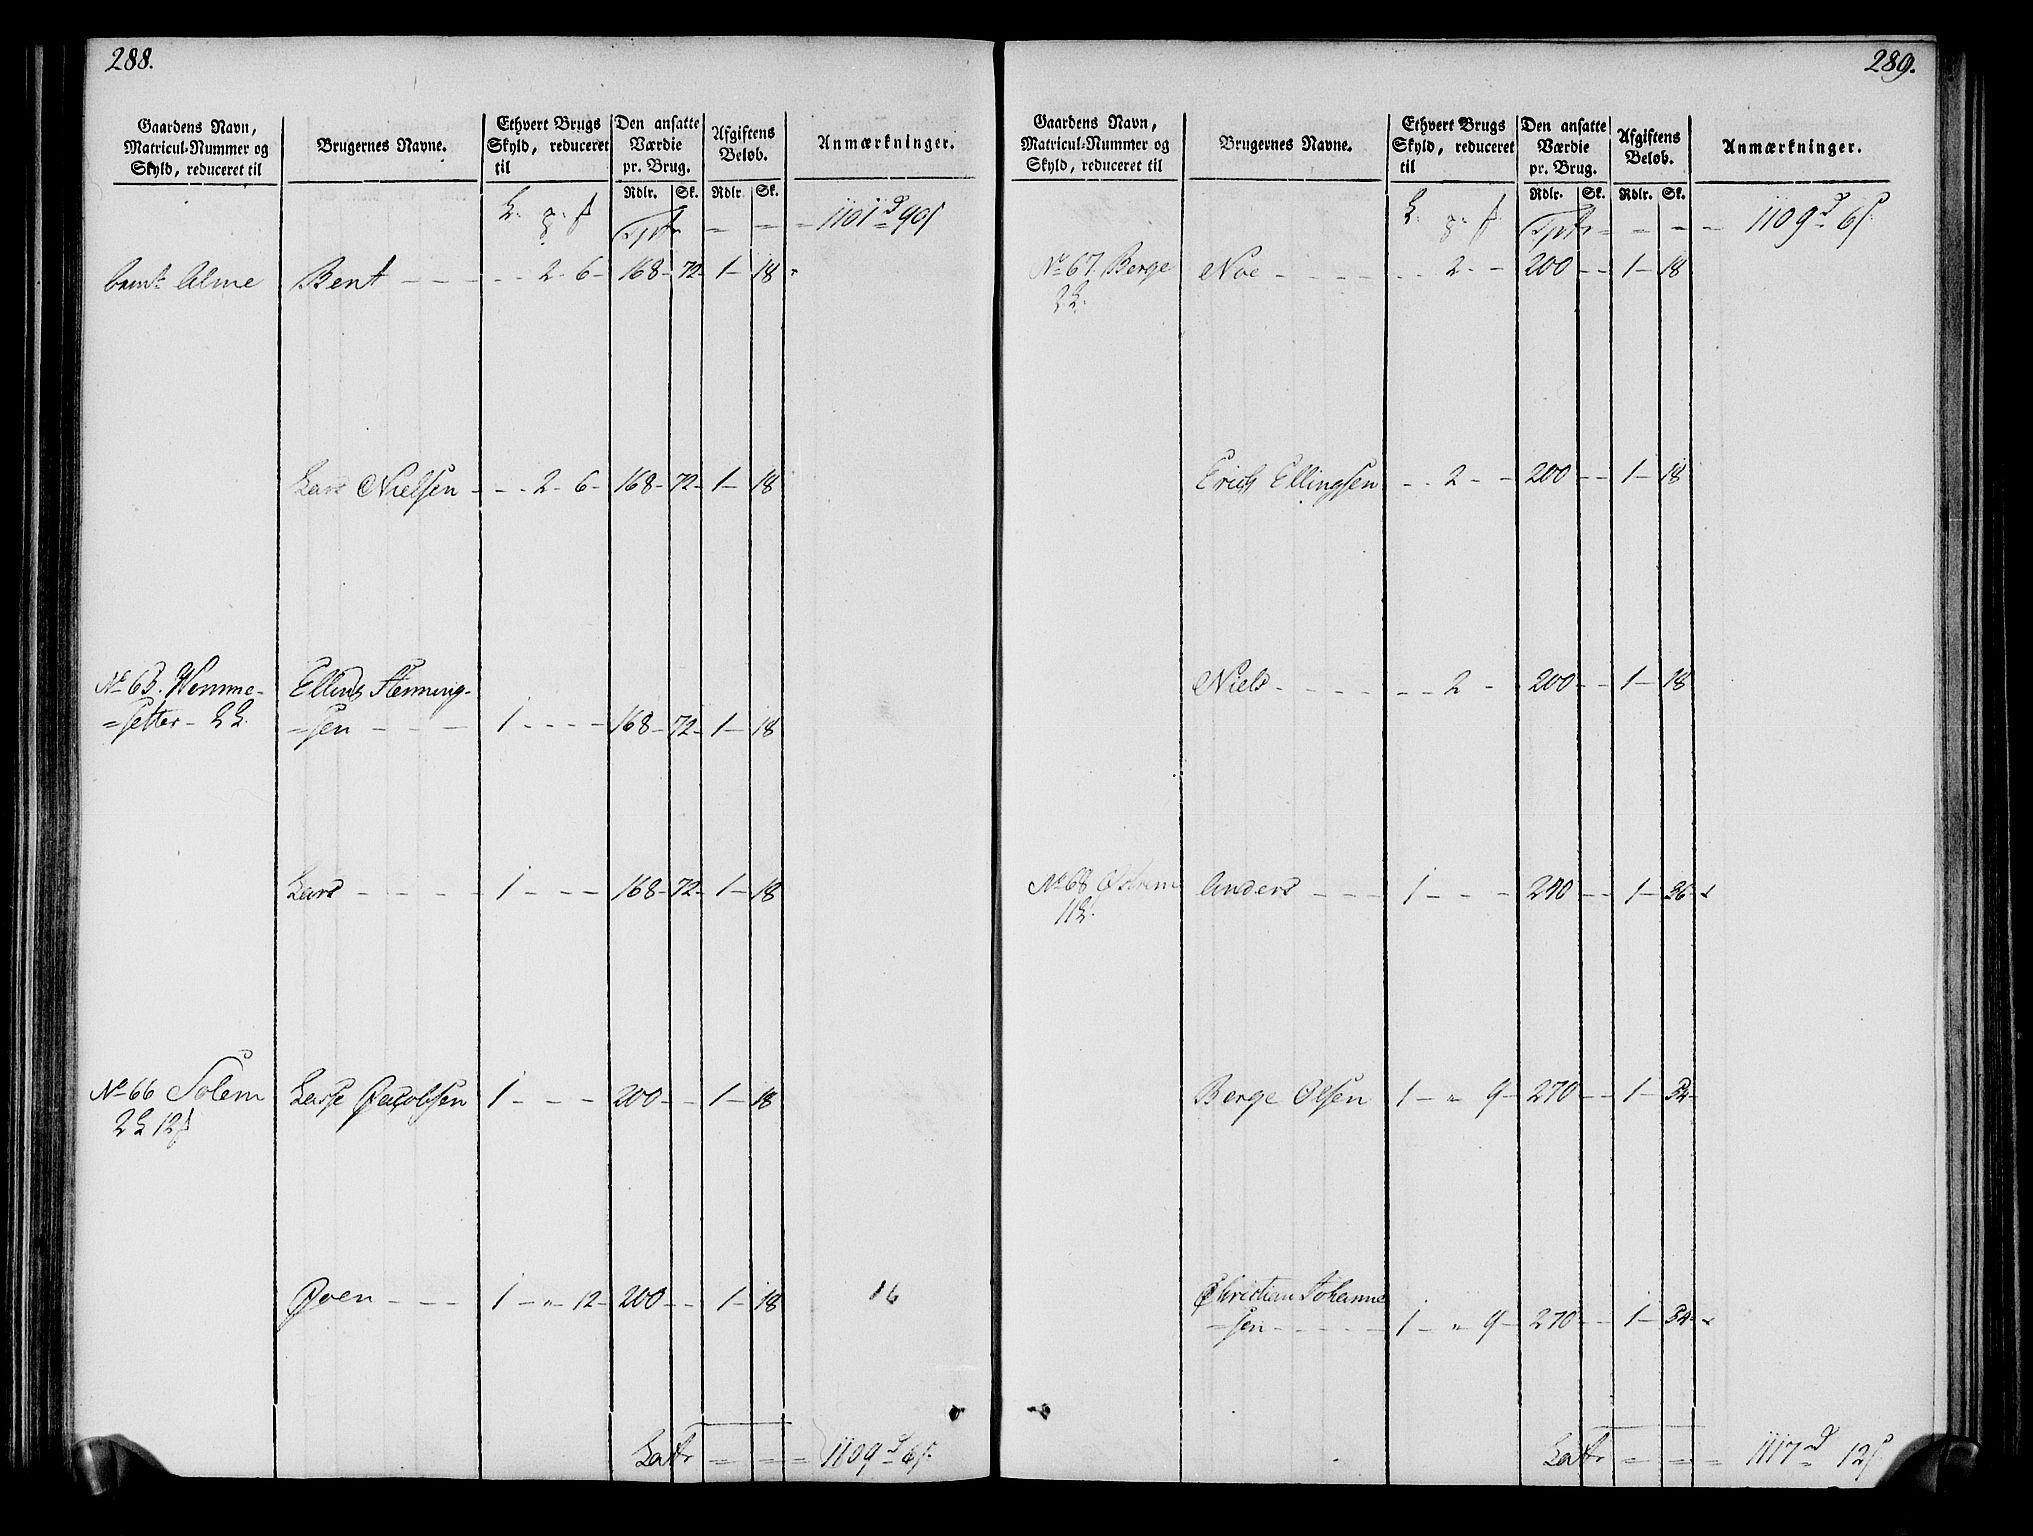 288.
Gaardens Navn, Matricul-Nummer og Skyld, reduceret til
Brugernes Navne.
Ethvert Brugs Skyld, reduceret til
Den ansatte Værdie pr. Brug.
Afgiftens Beløb.
Anmærkninger.
Rdlr. Sk. Rdlr. Sk.
Tptr - - - 1101 d 90 s
Alme Bent - - - - 2 - 6 - 168 - 72 - 1 - 18
Lars Nielsen - - - 2 - 6 - 168 - 72 - 1 - 18
No 63. Wemme- Elling Henning-
=setter - 2 L. =sen - - - 1 - - - - 168 - 72 - 1 - 18
Lars - - - - 1 - - - - 168 - 72 - 1 - 18
No 66 Solem Lasse Jacobsen 1 - - - 200 - - 1 - 18
2 L 12 s
Oven - - - 1 - " - 12 - 200 - - 1 - 18 16
Latr - - - - 1109 d 6 s.
289.
Gaardens Navn, Matricul-Nummer og Skyld, reduceret til
Brugernes Navne.
Ethvert Brugs Skyld, reduceret til
Den ansatte Værdie pr. Brug.
Afgiftens Beløb.
Anmærkninger.
Rdlr. Sk. Rdlr. Sk.
Tptr - - - - 1109 d 6 s.
No 67. Berge Noe - - - - - - 2 - - 200 - - 1 - 18
2 L.
Erich Ellingsen - - 2 - - 200 - - 1 - 18
Niels - - - - - - - 2 - 200 - - 1 - 18
No 68 Østrem Anders - - - 1 - - - 240 - 1 - 36
11 L.
Berge Olsen 1 - " 9 - 270 - - 1 - 54
Christian Johanne
=sen - - - - 1 - " 9 - 270 - - 1 - 54
Latr - - - - 1117 d 12 s